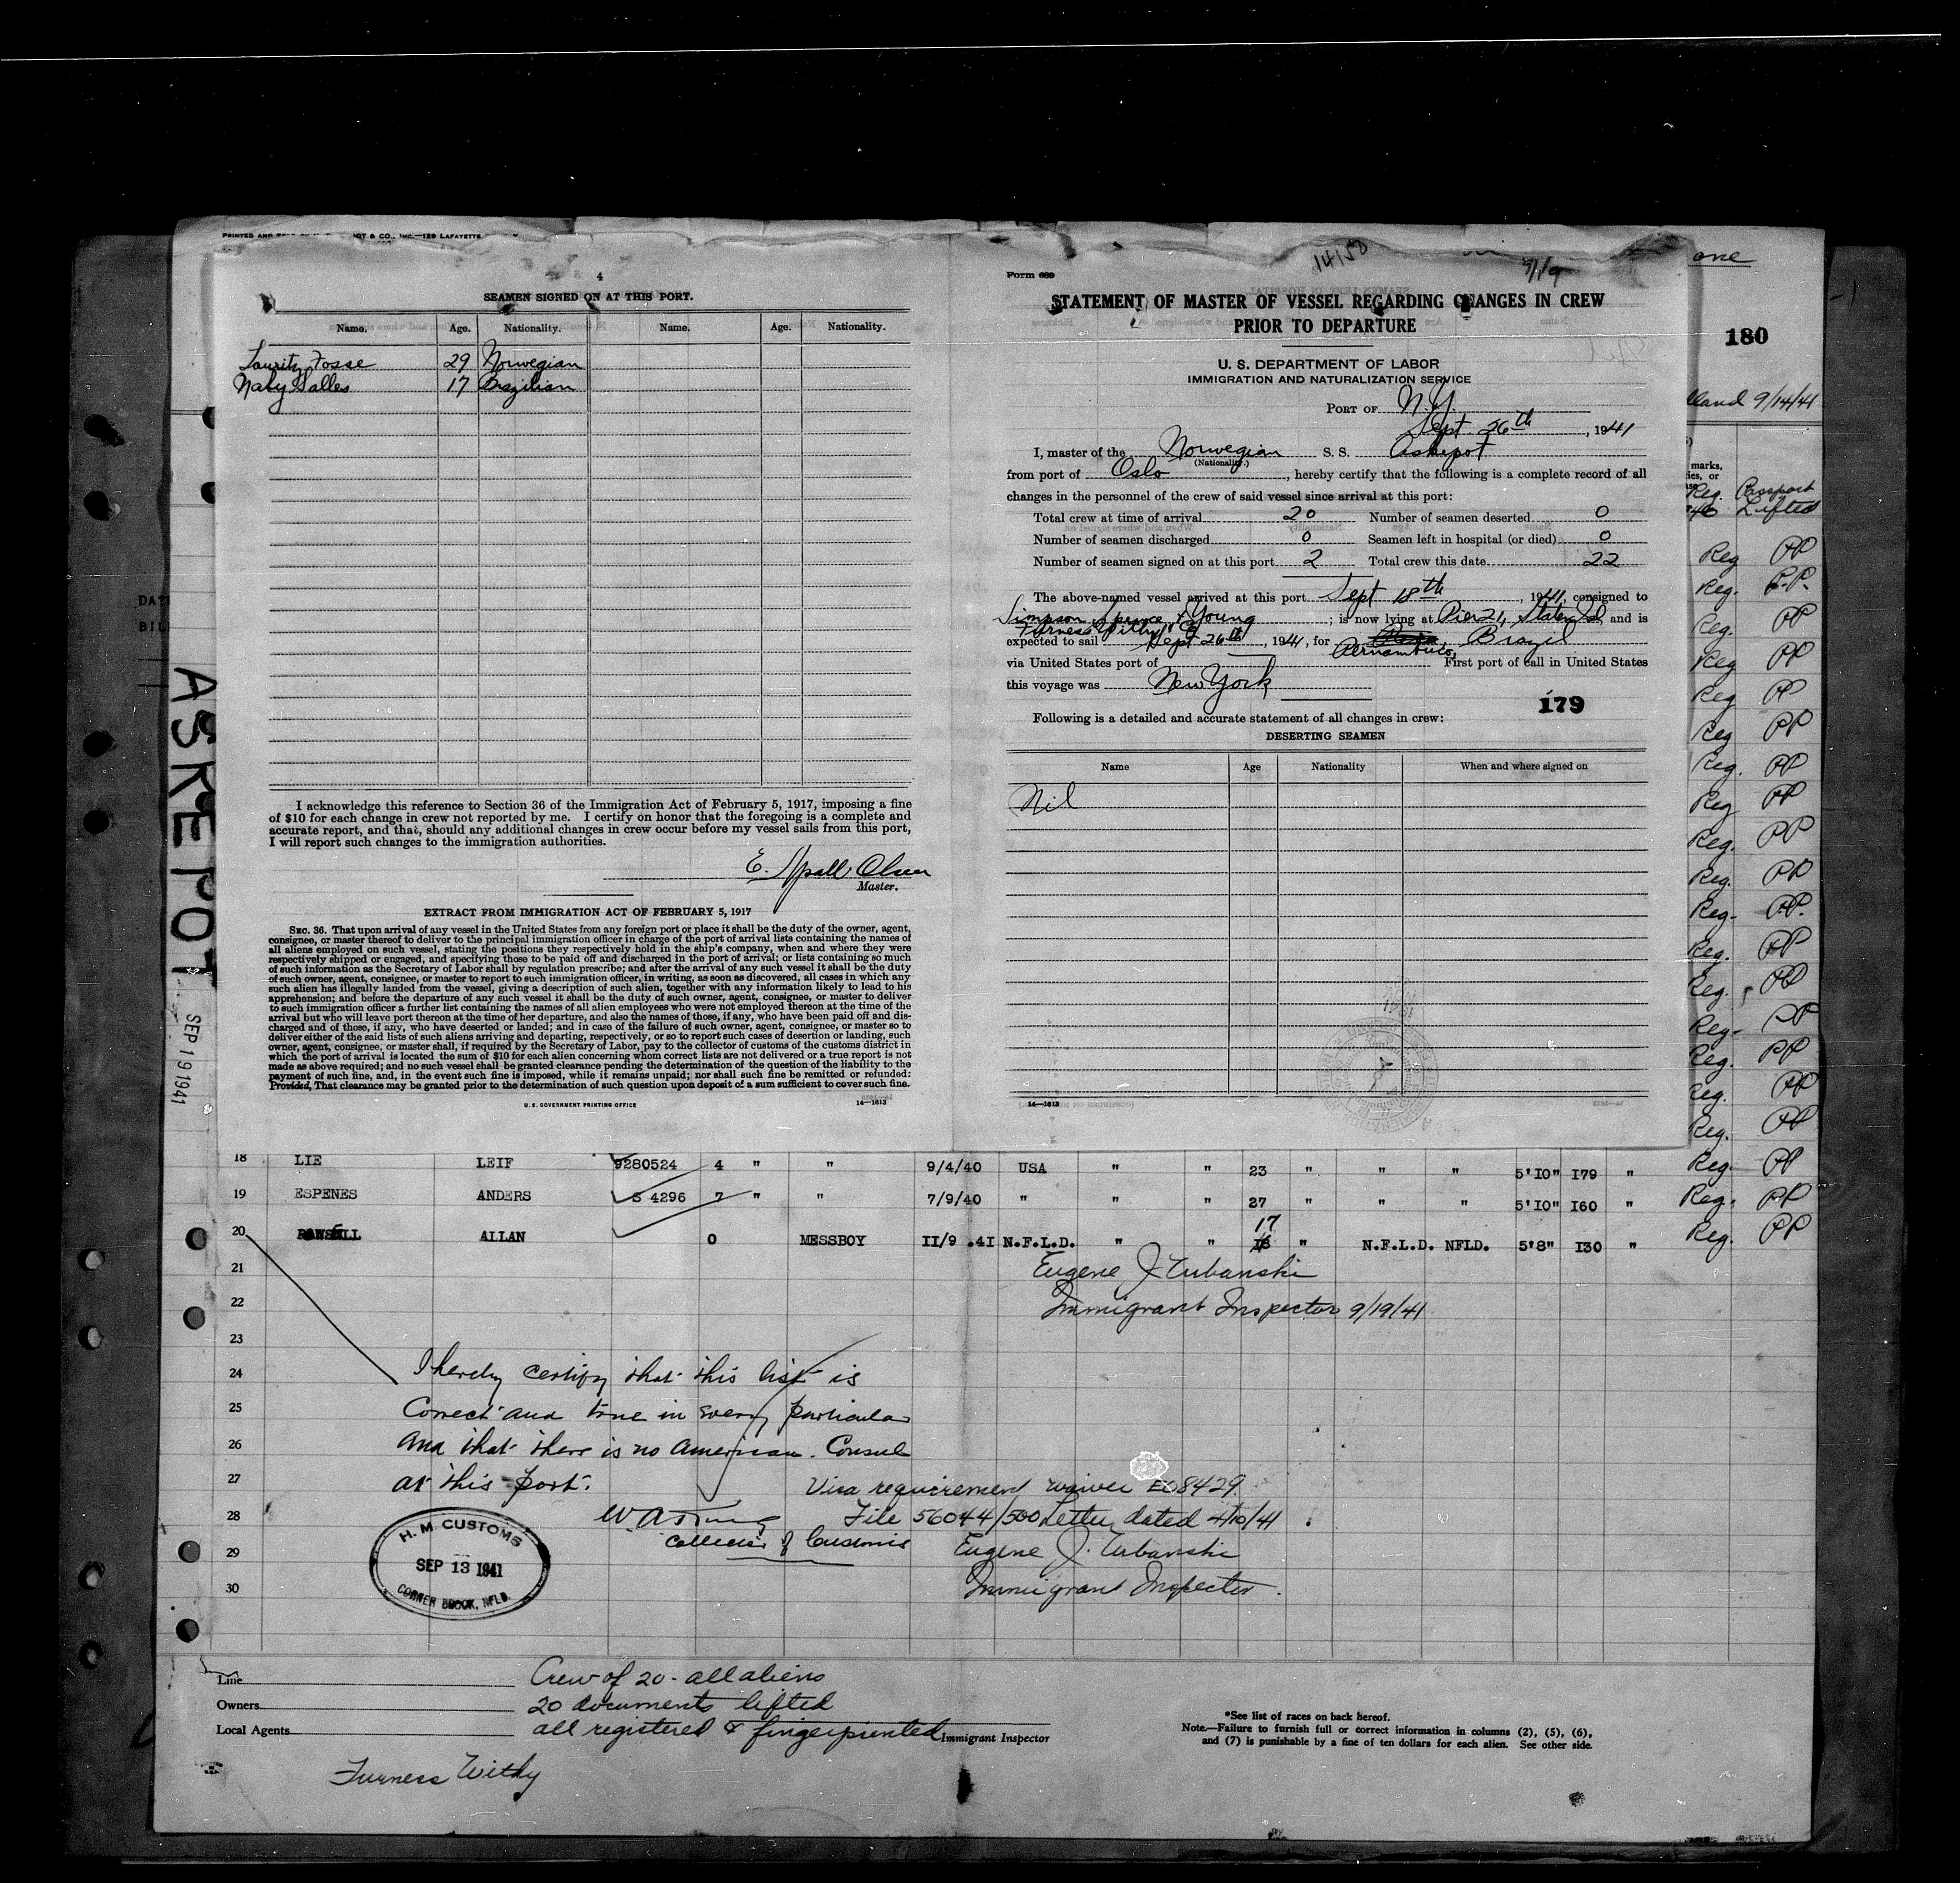 4
SEAMEN SIGNED ON AT THIS PORT.
Name. Age. Nationality. Name. Age. Nationality.
Lauritz Fosse 29 Norwegian
Naby Salles 17 Brazilian
I acknowledge this reference to Section 36 of the Immigration Act of February 5, 1917, imposing a fine
of $10 for each change in crew not reported by me. I certify on honor that the foregoing is a complete and
accurate report, and that, should any additional changes in crew occur before my vessel sails from this port,
I will report such changes to the immigration authorities.
E. Olsen
Master.
EXTRACT FROM IMMIGRATION ACT OF FEBRUARY 5, 1917
SEC. 36. That upon arrival of any vessel in the United States from any foreign port or place it shall be the duty of the owner, agent,
consignee, or master thereof to deliver to the principal immigration officer in charge of the port of arrival lists containing the names of
all aliens employed on such vessel, stating the positions they respectively hold in the ship's company, when and where they were
respectively shipped or engaged, and specifying those to be paid off and discharged in the port of arrival; or lists containing so much
of such information as the Secretary of Labor shall by regulation prescribe; and after the arrival of any such vessel it shall be the duty
of such owner, agent, consignee, or master to report to such immigration officer, in writing, as soon as discovered, all cases in which any
such alien has illegally landed from the vessel, giving a description of such alien, together with any information likely to lead to his
apprehension; and before the departure of any such vessel it shall be the duty of such owner, agent, consignee, or master to deliver
to such immigration officer a further list containing the names of all alien employees who were not employed thereon at the time of the
arrival but who will leave port thereon at the time of her departure, and also the names of those, if any, who have been paid off and dis-
charged and of those, if any, who have deserted or landed; and in case of the failure of such owner, agent, consignee, or master so to
deliver either of the said lists of such aliens arriving and departing, respectively, or so to report such cases of desertion or landing, such
owner, agent, consignee, or master shall, if required by the Secretary of Labor, pay to the collector of customs of the customs district in
which the port of arrival is located the sum of $10 for each alien concerning whom correct lists are not delivered or a true report is not
made as above required; and no such vessel shall be granted clearance pending the determination of the question of the liability to the
payment of such fine, and, in the event such fine is imposed, while it remains unpaid; nor shall such fine be remitted or refunded:
Provided, That clearance may be granted prior to the determination of such question upon deposit of a sum sufficient to cover such fine.
U.S. GOVERNMENT PRINTING OFFICE 14—1613
Form 689 14150 9/19
STATEMENT OF MASTER OF VESSEL REGARDING CHANGES IN CREW
PRIOR TO DEPARTURE
U. S. DEPARTMENT OF LABOR
IMMIGRATION AND NATURALIZATION SERVICE
PORT OF N.Y.
Sept 26th, 1941
I, master of the Norwegian S. S. Askepot
(Nationality.)
from port of Oslo, hereby certify that the following is a complete record of all
changes in the personnel of the crew of said vessel since arrival at this port:
Total crew at time of arrival 20 Number of seamen deserted 0
Number of seamen discharged 0 Seamen left in hospital (or died) 0
Number of seamen signed on at this port 2 Total crew this date 22
The above-named vessel arrived at this port Sept 18th, 1941, consigned to
Simpson Spence & Young; is now lying at Pier 21, Staten Isl and is
Furness Withy & Co
expected to sail Sept 26th, 1941, for Brazil
Pernambuco,
via United States port of First port of call in United States
this voyage was New York
179
Following is a detailed and accurate statement of all changes in crew:
DESERTING SEAMEN
Name Age Nationality When and where signed on
Nil
14—1613
one
180
lland 9/14/41
marks,
ies, or
Reg. Passport
Lifted
Reg PP
Reg. P.P.
Reg. PP
Reg PP
Reg PP
Reg PP
Reg. PP
Reg PP
Reg. PP
Reg. PP
Reg- PP.
Reg. PP
Reg. PP
Reg- PP
Reg. PP
Reg. PP
Reg. PP
ASKEPOT
SEP 19 1941
18 LIE LEIF 9280524 4 " " 9/4/40 USA " " 23 " " " 5'10" I79 " Reg. PP
19 ESPENES ANDERS S 4296 7 " " 7/9/40 " " " 27 " " " 5'10" I60 " Reg. PP
20 ALLAN 0 MESSBOY II/9 .4I N.F.L.D. " " 17 " N.F.L.D. NFLD. 5'8" I30 " Reg. PP
21 Eugene J. Urbanski
22 Immigrant Inspector 9/19/41
23
24 I hereby certify that this list is
25 Correct and true in every particular
26 and that there is no American Consul
27 at this port. Visa requirement waived EO8429
28 File 56044/500 Letter dated 4/10/41
29 Collector of Customs Eugene J. Urbanski
30 Immigrant Inspector.
H. M CUSTOMS
SEP 13 1941
CORNER BROOK, NFLD.
Line Crew of 20 - all aliens
Owners 20 documents lifted
Local Agents all registered & fingerprinted Immigrant Inspector
Furness Withy
*See list of races on back hereof.
Note.—Failure to furnish full or correct information in columns (2), (5), (6),
and (7) is punishable by a fine of ten dollars for each alien. See other side.